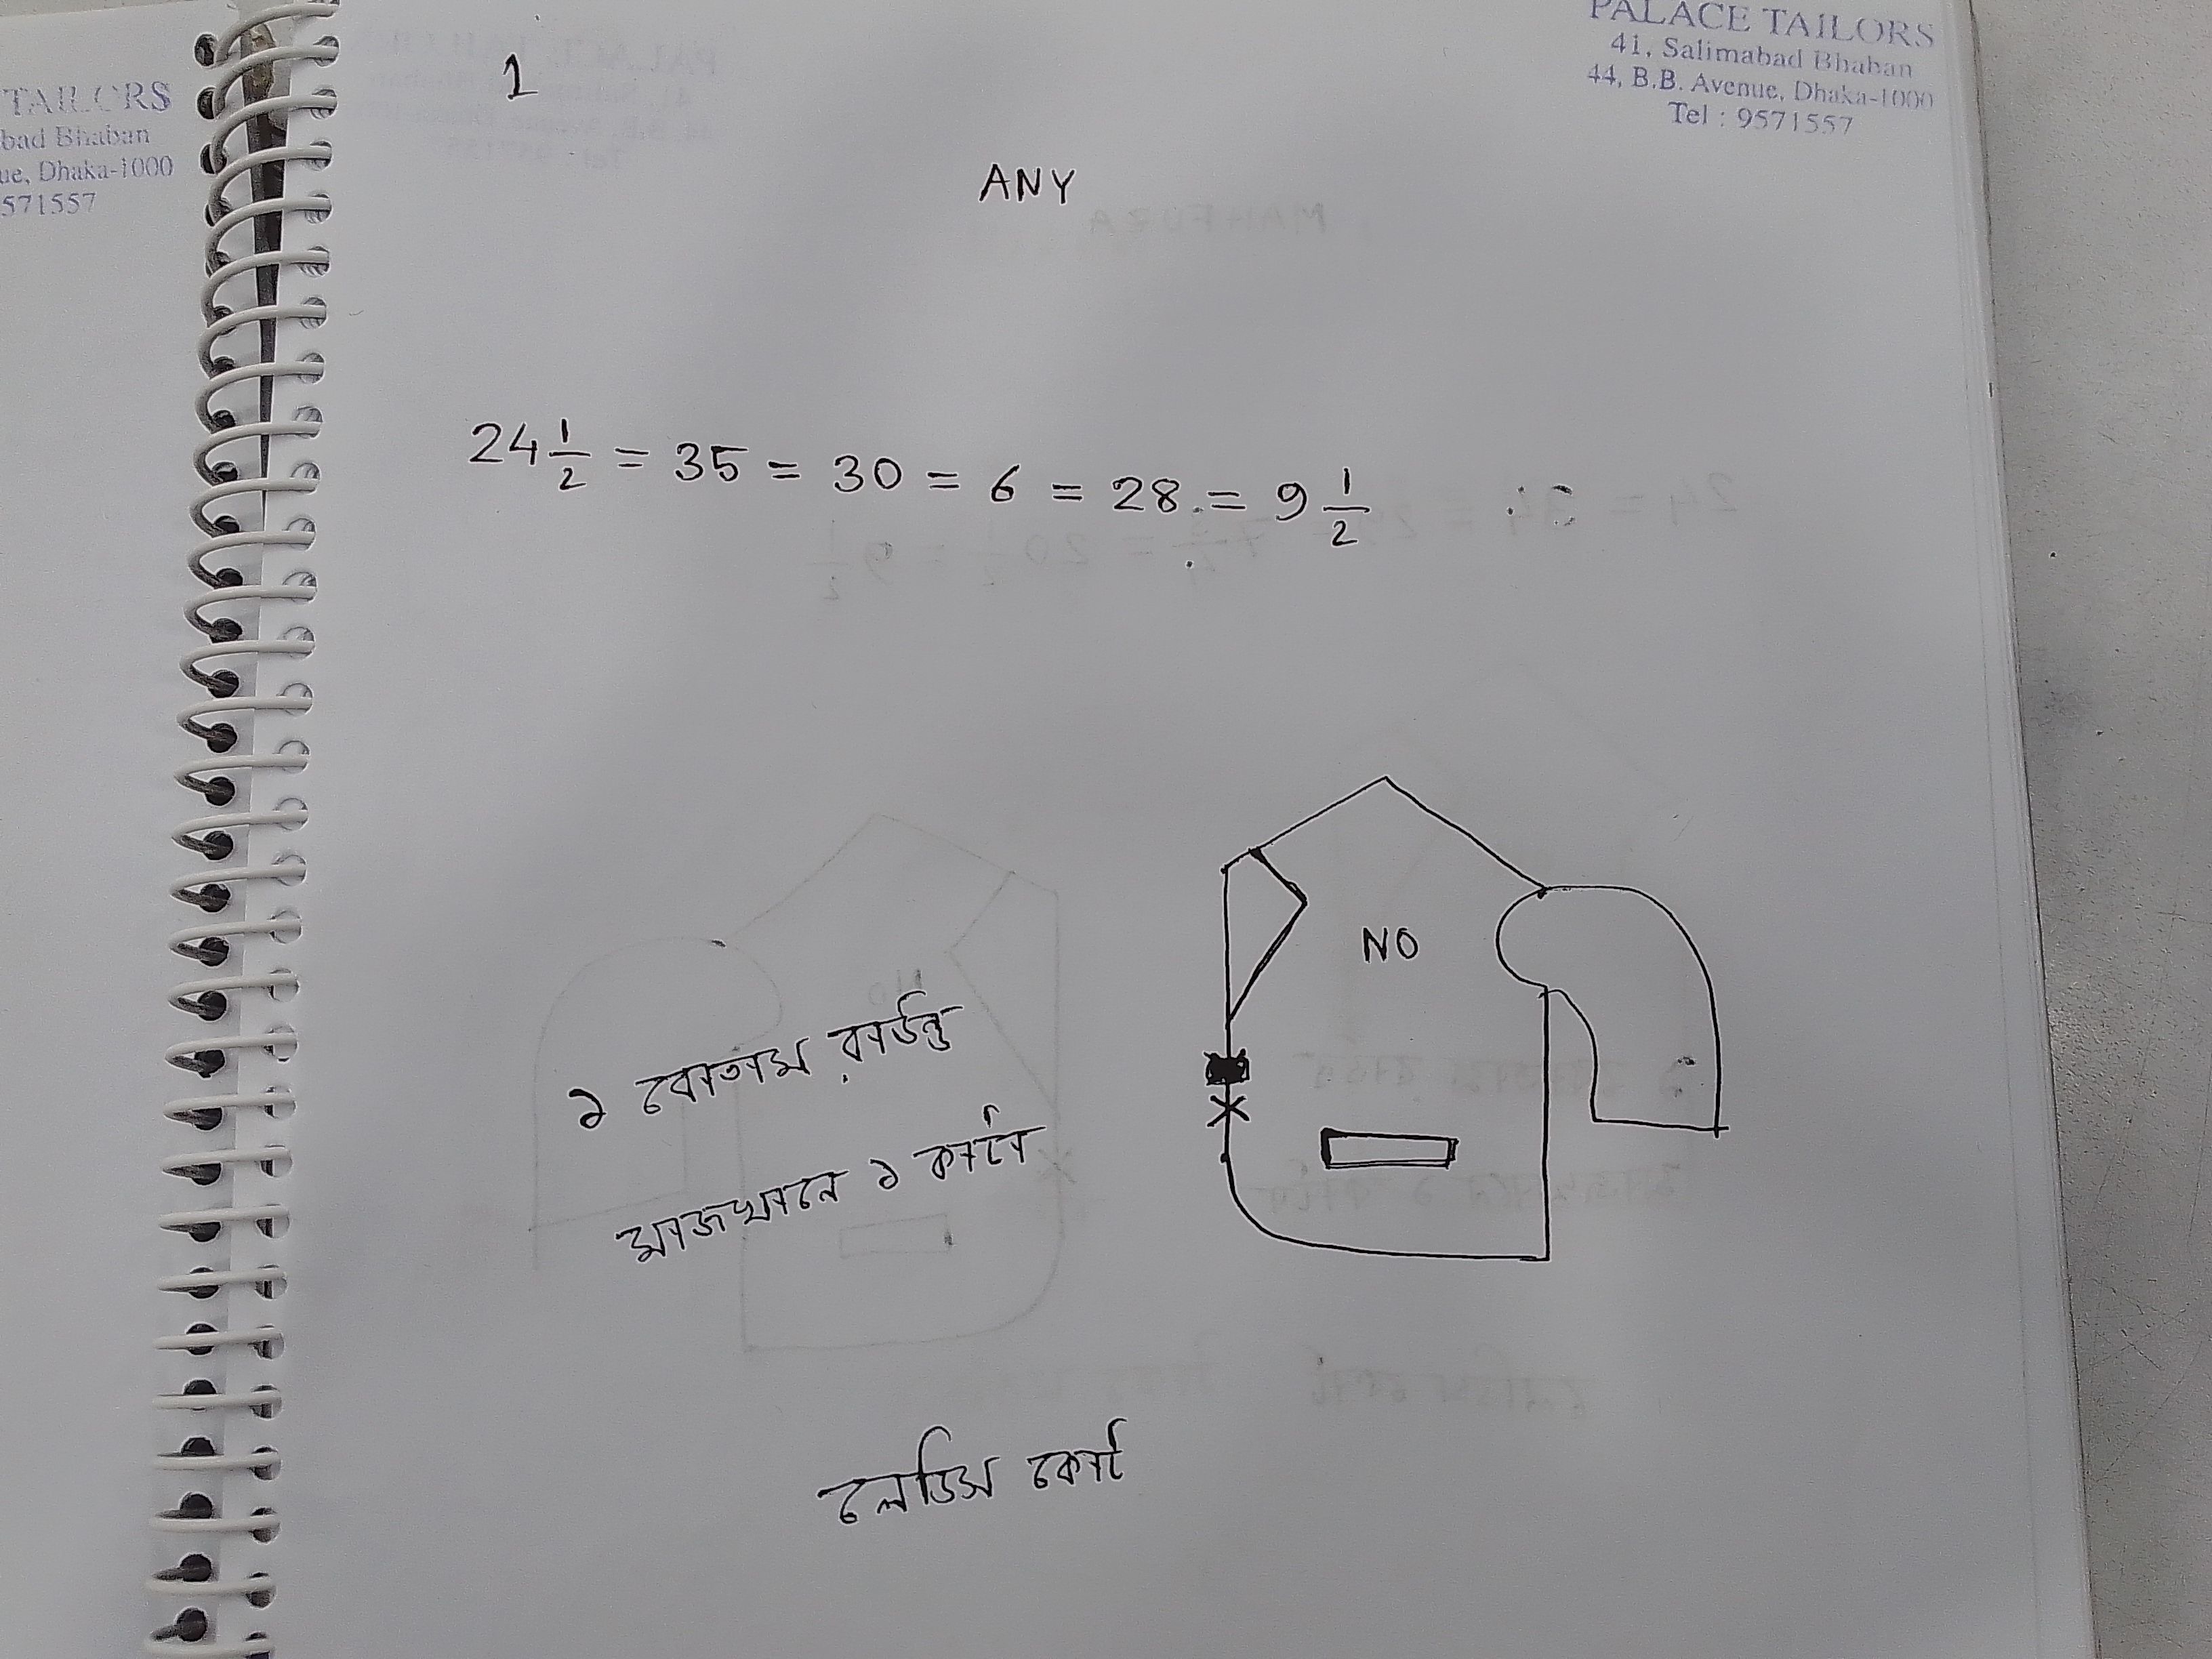 TAILORS
bad Bhaban
ue, Dhaka-1000
571557
PALACE TAILORS
41, Salimabad Bhaban
44, B.B. Avenue, Dhaka-1000
Tel : 9571557
1
ANY
24 1/2 = 35 = 30 = 6 = 28 = 9 1/2
NO
১ বোতাম রাউন্ড
মাজখানে ১ কাটে
লেডিস কোট